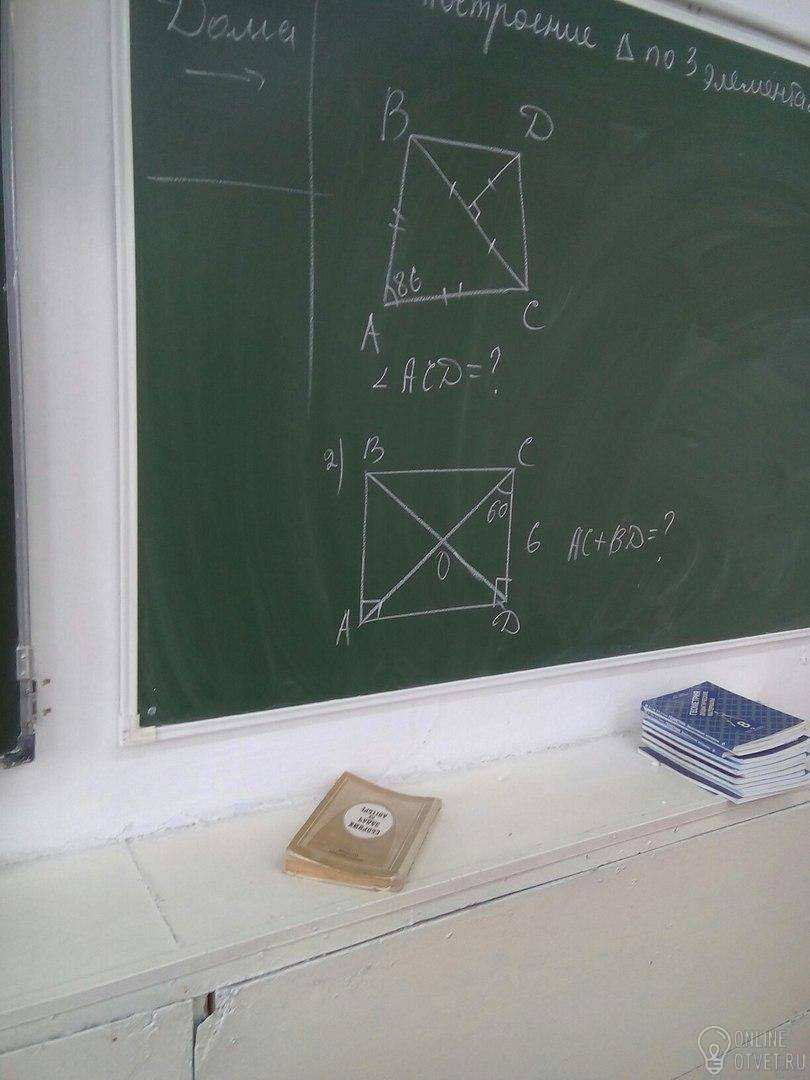 Дома
Построение Δ по 3 элемента
B
D
86
A
C
∠ACD=?
2)
B
C
60
6
AC+BD=?
O
A
D
ГЕОМЕТРИЯ
ДИДАКТИЧЕСКИЕ
МАТЕРИАЛЫ
8
СБОРНИК
ЗАДАЧ
ПО
АЛГЕБРЕ
ONLINE
OTVET.RU